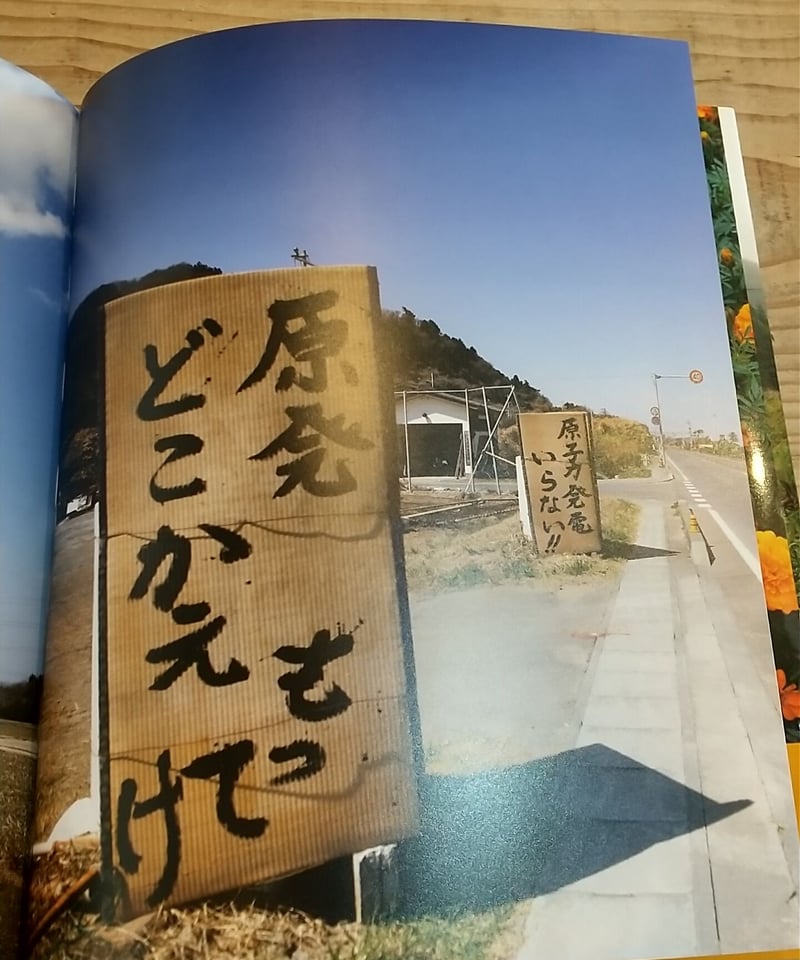 原発
どこかえ
もって
け
原子力発電
いらない!!
40